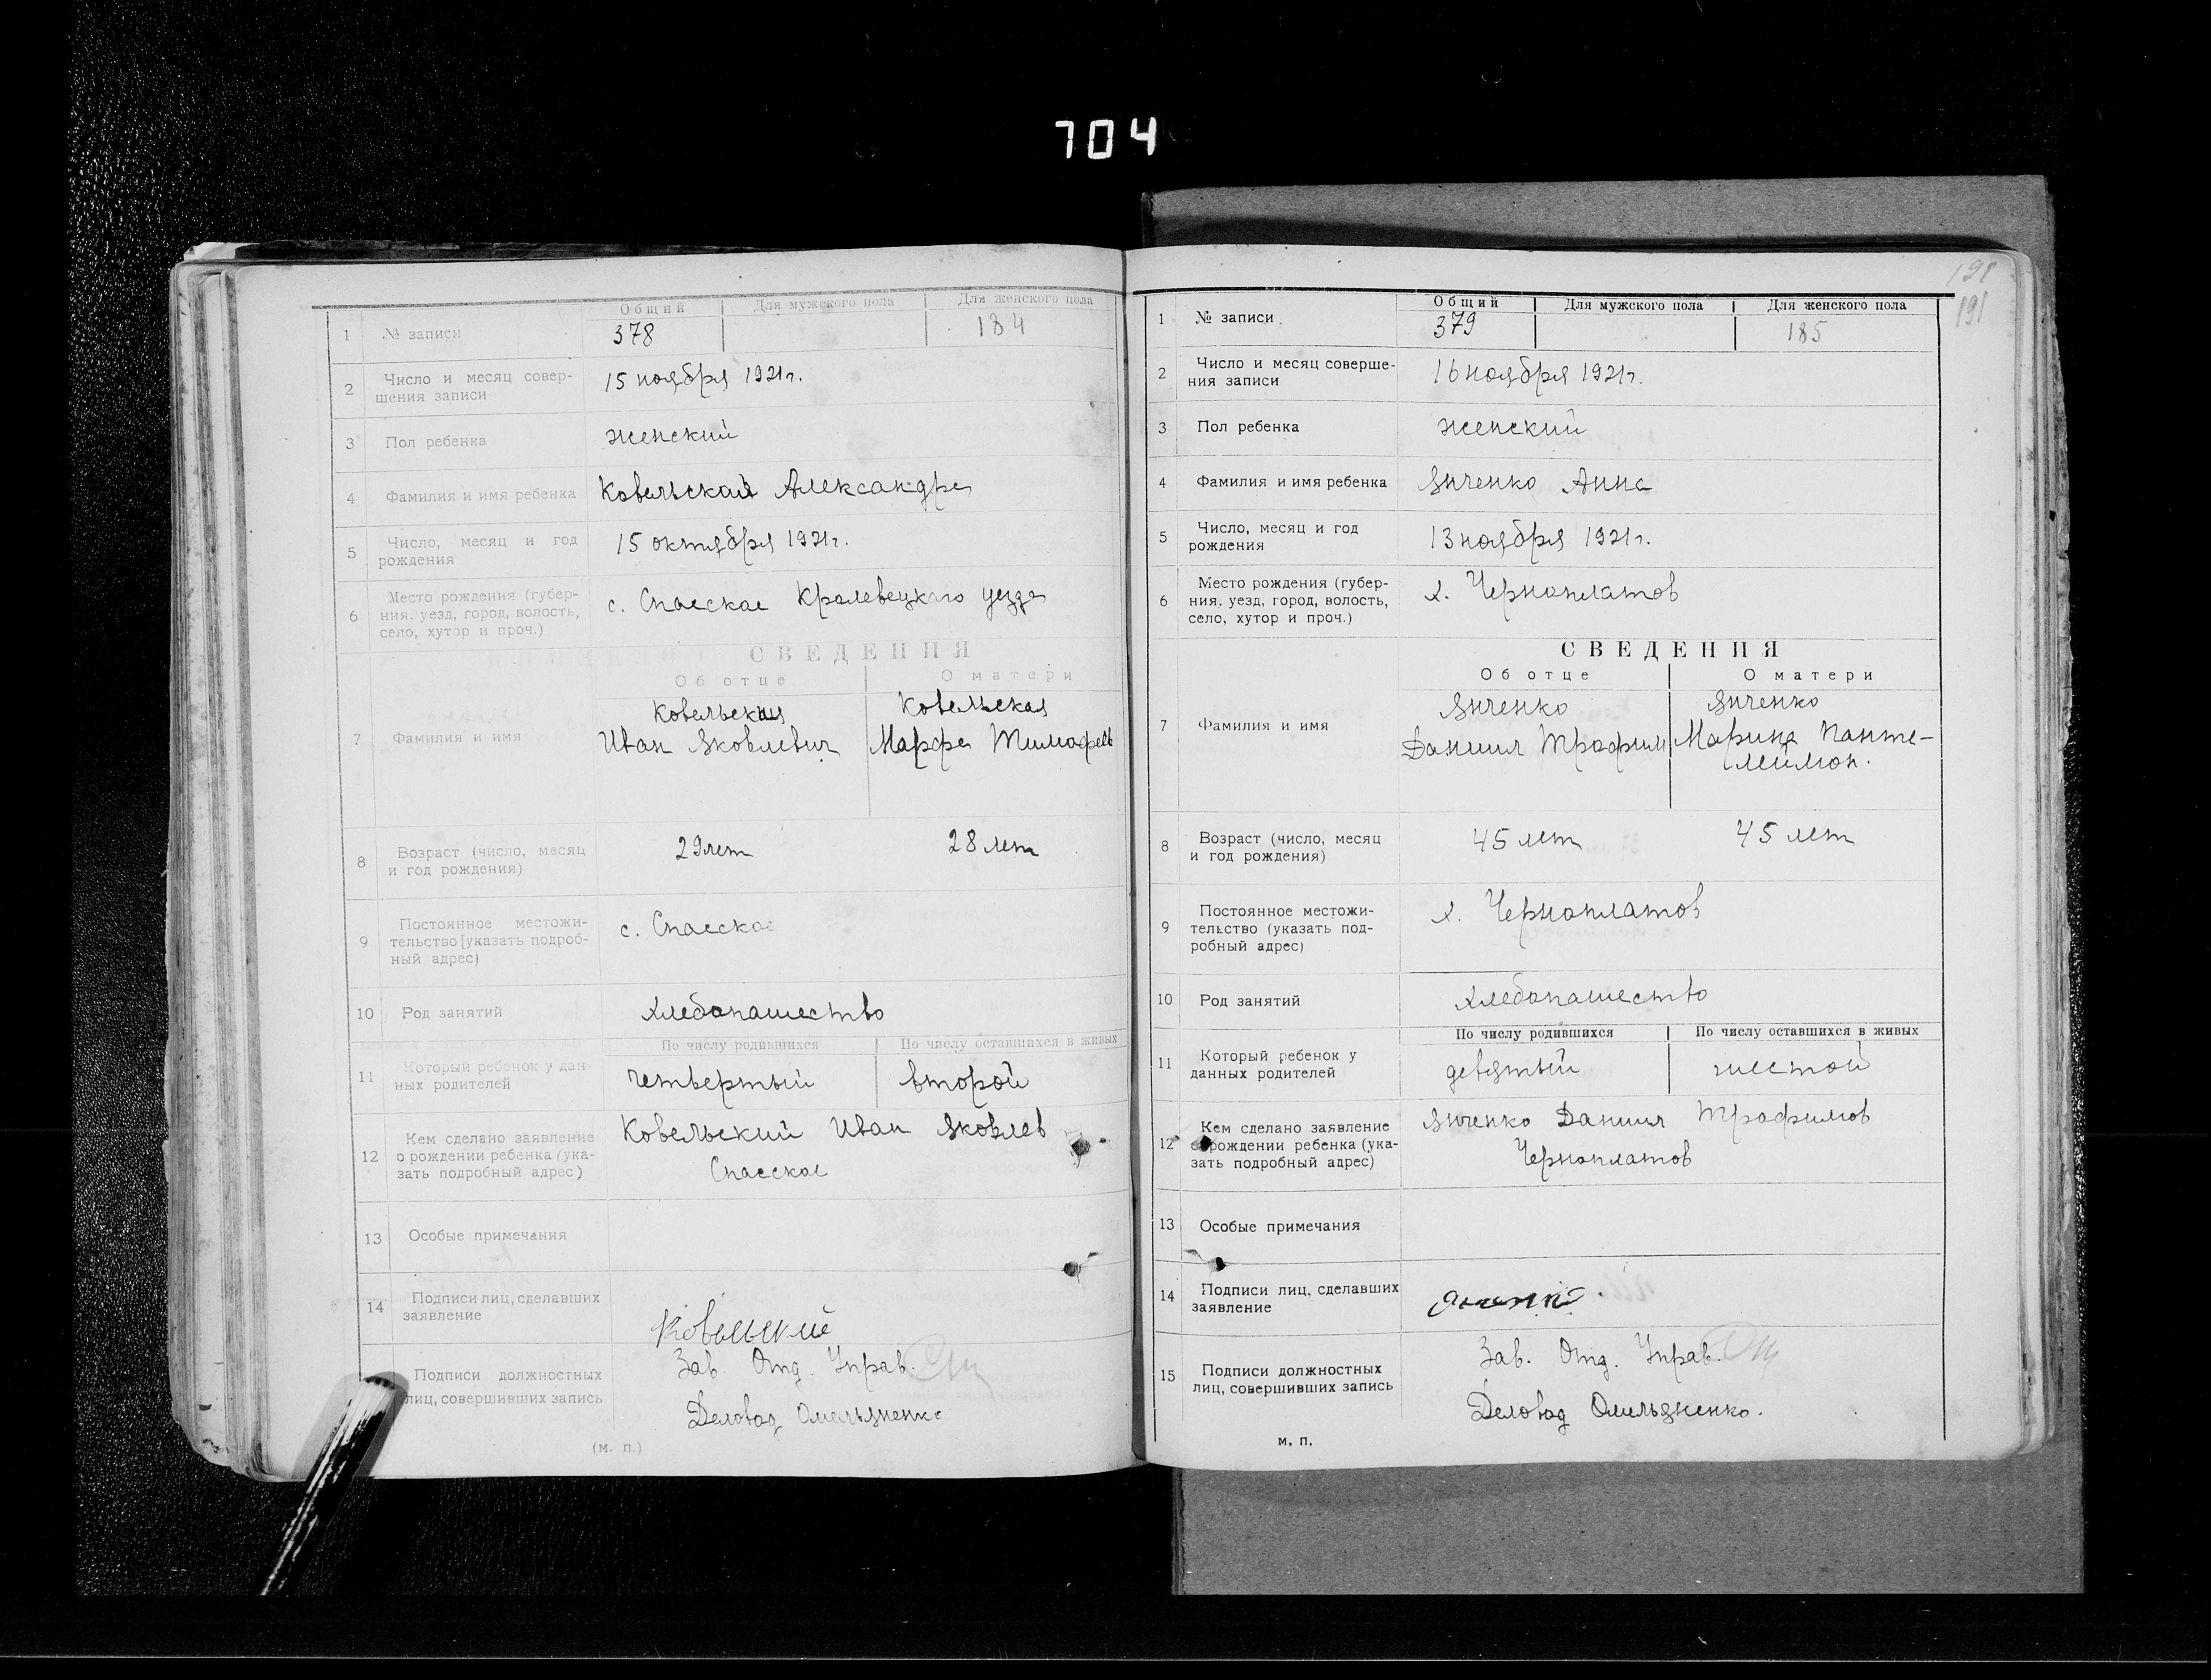 704
Общий Для мужского пола Для женского пола
1 № записи 378 184
2 Число и месяц совер-
шения записи 15 ноября 1921г.
3 Пол ребенка женский
4 Фамилия и имя ребенка Ковельская Александра
5 Число, месяц и год
рождения 15 октября 1921г.
6 Место рождения (губер-
ния, уезд, город, волость,
село, хутор и проч.) с. Спасское Кролевецкого уезда
СВЕДЕНИЯ
Об отце О матери
7 Фамилия и имя
Ковельский Ковельская
Иван Яковлевич Марфа Тимофеев
8 Возраст (число, месяц
и год рождения) 29 лет 28 лет
9 Постоянное местожи-
тельство [указать подроб-
ный адрес) с. Спасское
10 Род занятий хлебопашество
По числу родившихся По числу оставшихся в живых
11 Который ребенок у дан-
ных родителей четвертый второй
12 Кем сделано заявление
о рождении ребенка (ука-
зать подробный адрес) Ковельский Иван Яковлев
Спасское
13 Особые примечания
14 Подписи лиц, сделавших
заявление Ковельский
Подписи должностных
лиц, совершивших запись Зав. Отд. Управ.
Деловод Омельяненко
(м. п.)
191
191
Общий Для мужского пола Для женского пола
1 № записи 379 185
2 Число и месяц соверше-
ния записи 16 ноября 1921г.
3 Пол ребенка женский
4 Фамилия и имя ребенка Янченко Анна
5 Число, месяц и год
рождения 13 ноября 1921г.
6 Место рождения (губер-
ния, уезд, город, волость,
село, хутор и проч.) х. Черноплатов
СВЕДЕНИЯ
Об отце О матери
7 Фамилия и имя
Янченко Янченко
Даниил Трофим Марина Панте-
леймон.
8 Возраст (число, месяц
и год рождения) 45 лет 45 лет
9 Постоянное местожи-
тельство (указать под-
робный адрес) х. Черноплатов
10 Род занятий хлебопашество
По числу родившихся По числу оставшихся в живых
11 Который ребенок у
данных родителей девятый шестой
12 Кем сделано заявление
о рождении ребенка (ука-
зать подробный адрес) Янченко Даниил Трофимов
Черноплатов
13 Особые примечания
14 Подписи лиц, сделавших
заявление Янченко
15 Подписи должностных
лиц, совершивших запись Зав. Отд. Управ.
Деловод Омельяненко.
м. п.